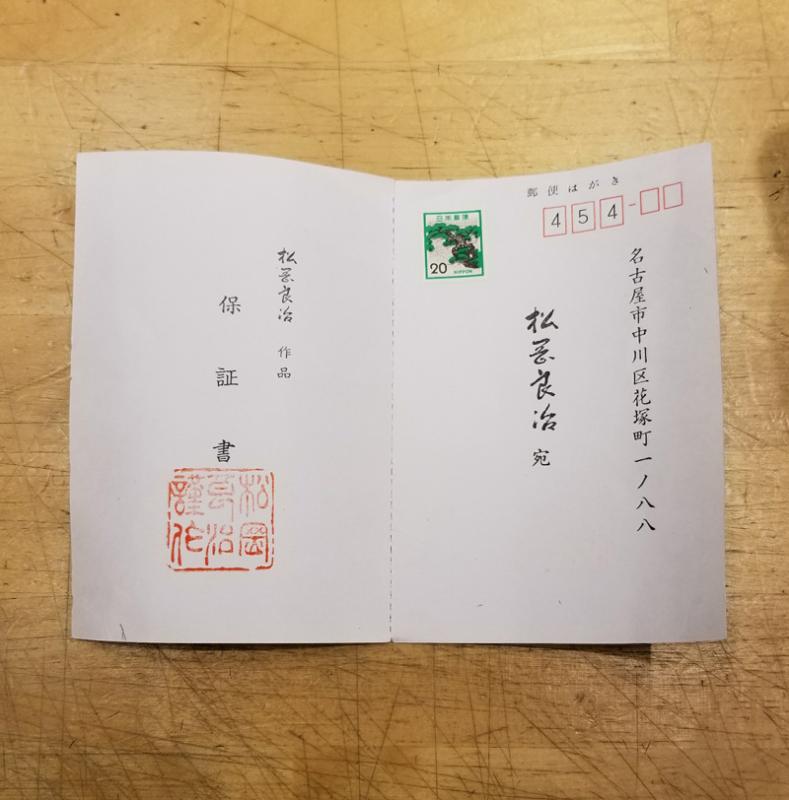 松岡良治 作品
保証書
松岡
良治
謹作
郵便はがき
454-
日本郵便
20
NIPPON
名古屋市中川区花塚町一ノ八八
松岡良治 宛